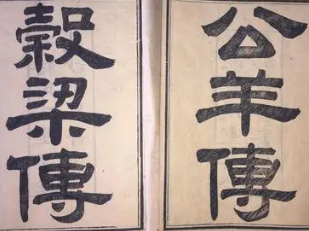 公羊傳
穀梁傳